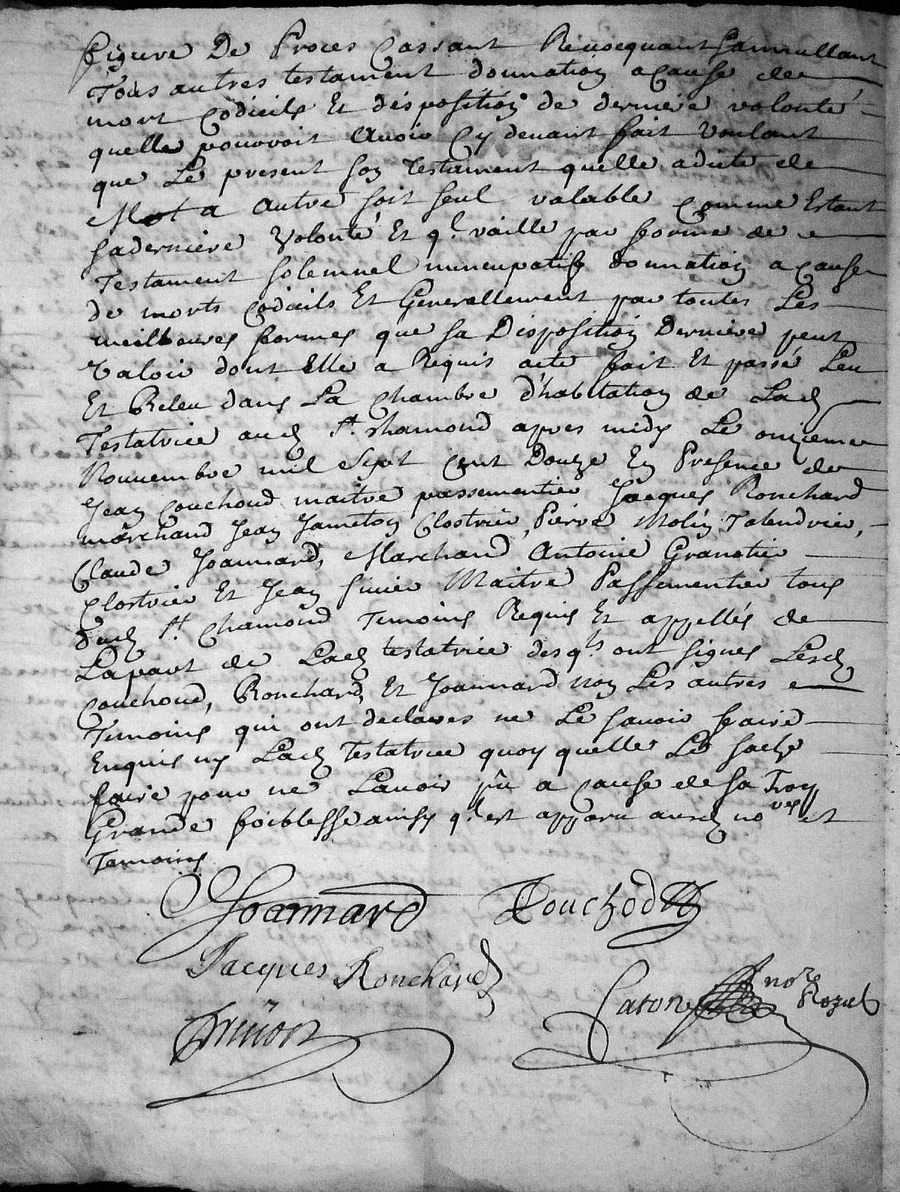 figure De Proces Cassant Reuocquant Sannullant
Tous autres testament donnation a cause de
mort Codicils Et disposition de derniere volonté
quelle pouvoit Avoir Cy devant fait Voulant
que Le present son Testament quelle a dicté de
Mot a autre soit seul valable comme Estant
sa derniere Volonté Et ql vaille par forme de
Testament solemnel nuncupatif donnation a cause
de morts Codicils Et Generallement par toutes Les
meilleures formes que sa Disposition Derniere peut
Valoir dont Elle a Requis acte fait Et passé Leu
Et Releu dans La chambre d'habitation de Lad
Testatrice aud St chamond apres midy Le onzieme
Nouuembre mil Sept Cent Douze En Presence de
Jean Couchoud maitre passementier Jacques Ronchard
marchand Jean Jameton Clostrier, Pierre Molin Talendrier,
Claude Joannard, Marchand Antoine Granotier
Clostrier Et Jean Maitre Passementier tous
dud St Chamond Temoins Requis Et appellés de
Lapart de Lad testatrice desqls ont signes Lesd
Couchoud, Ronchard, Et Joannard non Les autres
Temoins qui ont declares ne Le savoir faire
Enquis ny Lad Testatrice quoy quelle Le sache
faire pour ne Lavoir pû a cause de sa Trop
Grande foiblesse ainsy ql est apparu ausd nores et
Temoins
Joannard Couchod
Jacques Ronchard
Caron nore Royal